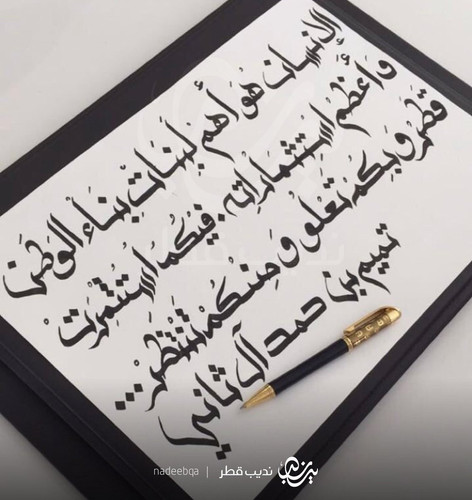 الإنسان هو أهم لبنات بناء الوطن
وأعظم استثماراته. فيكم استثمرت
قطر وبكم تعلو ومنكم تنتظر...
تميم بن حمد آل ثاني
نديب قطر
nadeebqa | نديب قطر